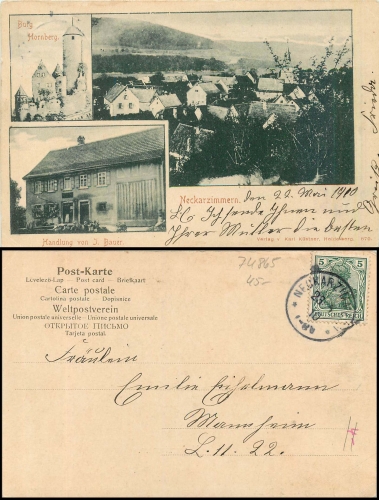 Burg
Hornberg.
Neckarzimmern, den 22. Mai 1900
Ich sende Ihnen und
Ihrer Mutter die besten
Handlung von J. Bauer.
Verlag v. Karl
74865
45.-
Post-Karte
Levelezö-Lap — Post card — Briefkaart
Carte postale
Cartolina postale Dopisnice
Weltpostverein
Union postale universelle — Unione postale universale
ОТКРЫТОЕ ПИСЬМО
Tarjeta postal.
5 5
NECKARZI
Fräulein
Emilie
Mannheim
L. 11. 22.